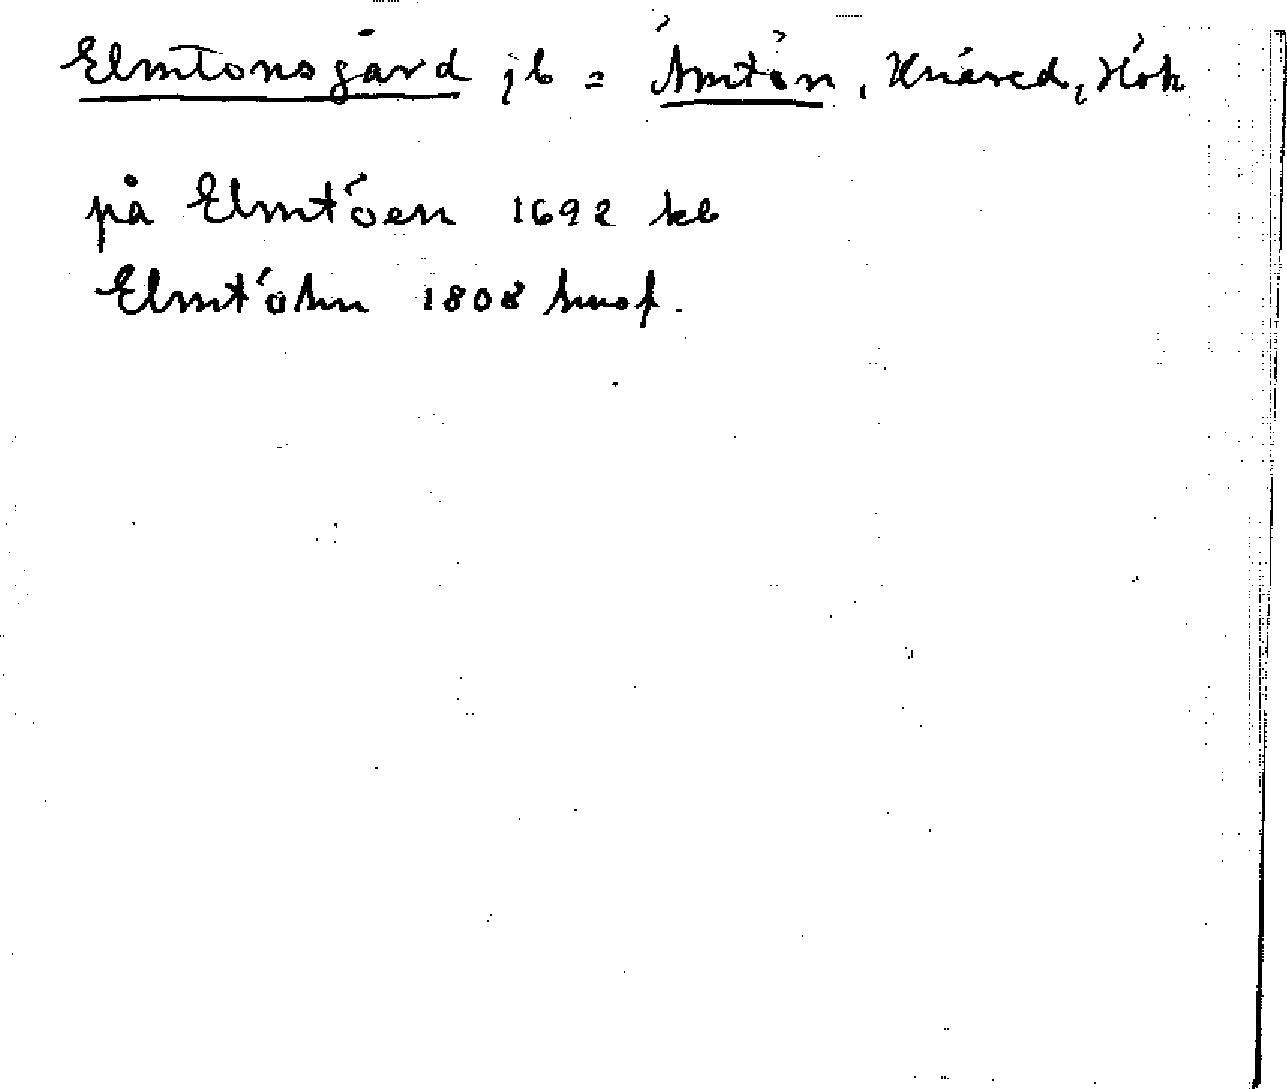 Elmtonsgård jb = Ämtön, Knäred, Hök
på Elmtöen 1692 kb
Elmtöhn 1808 husf.